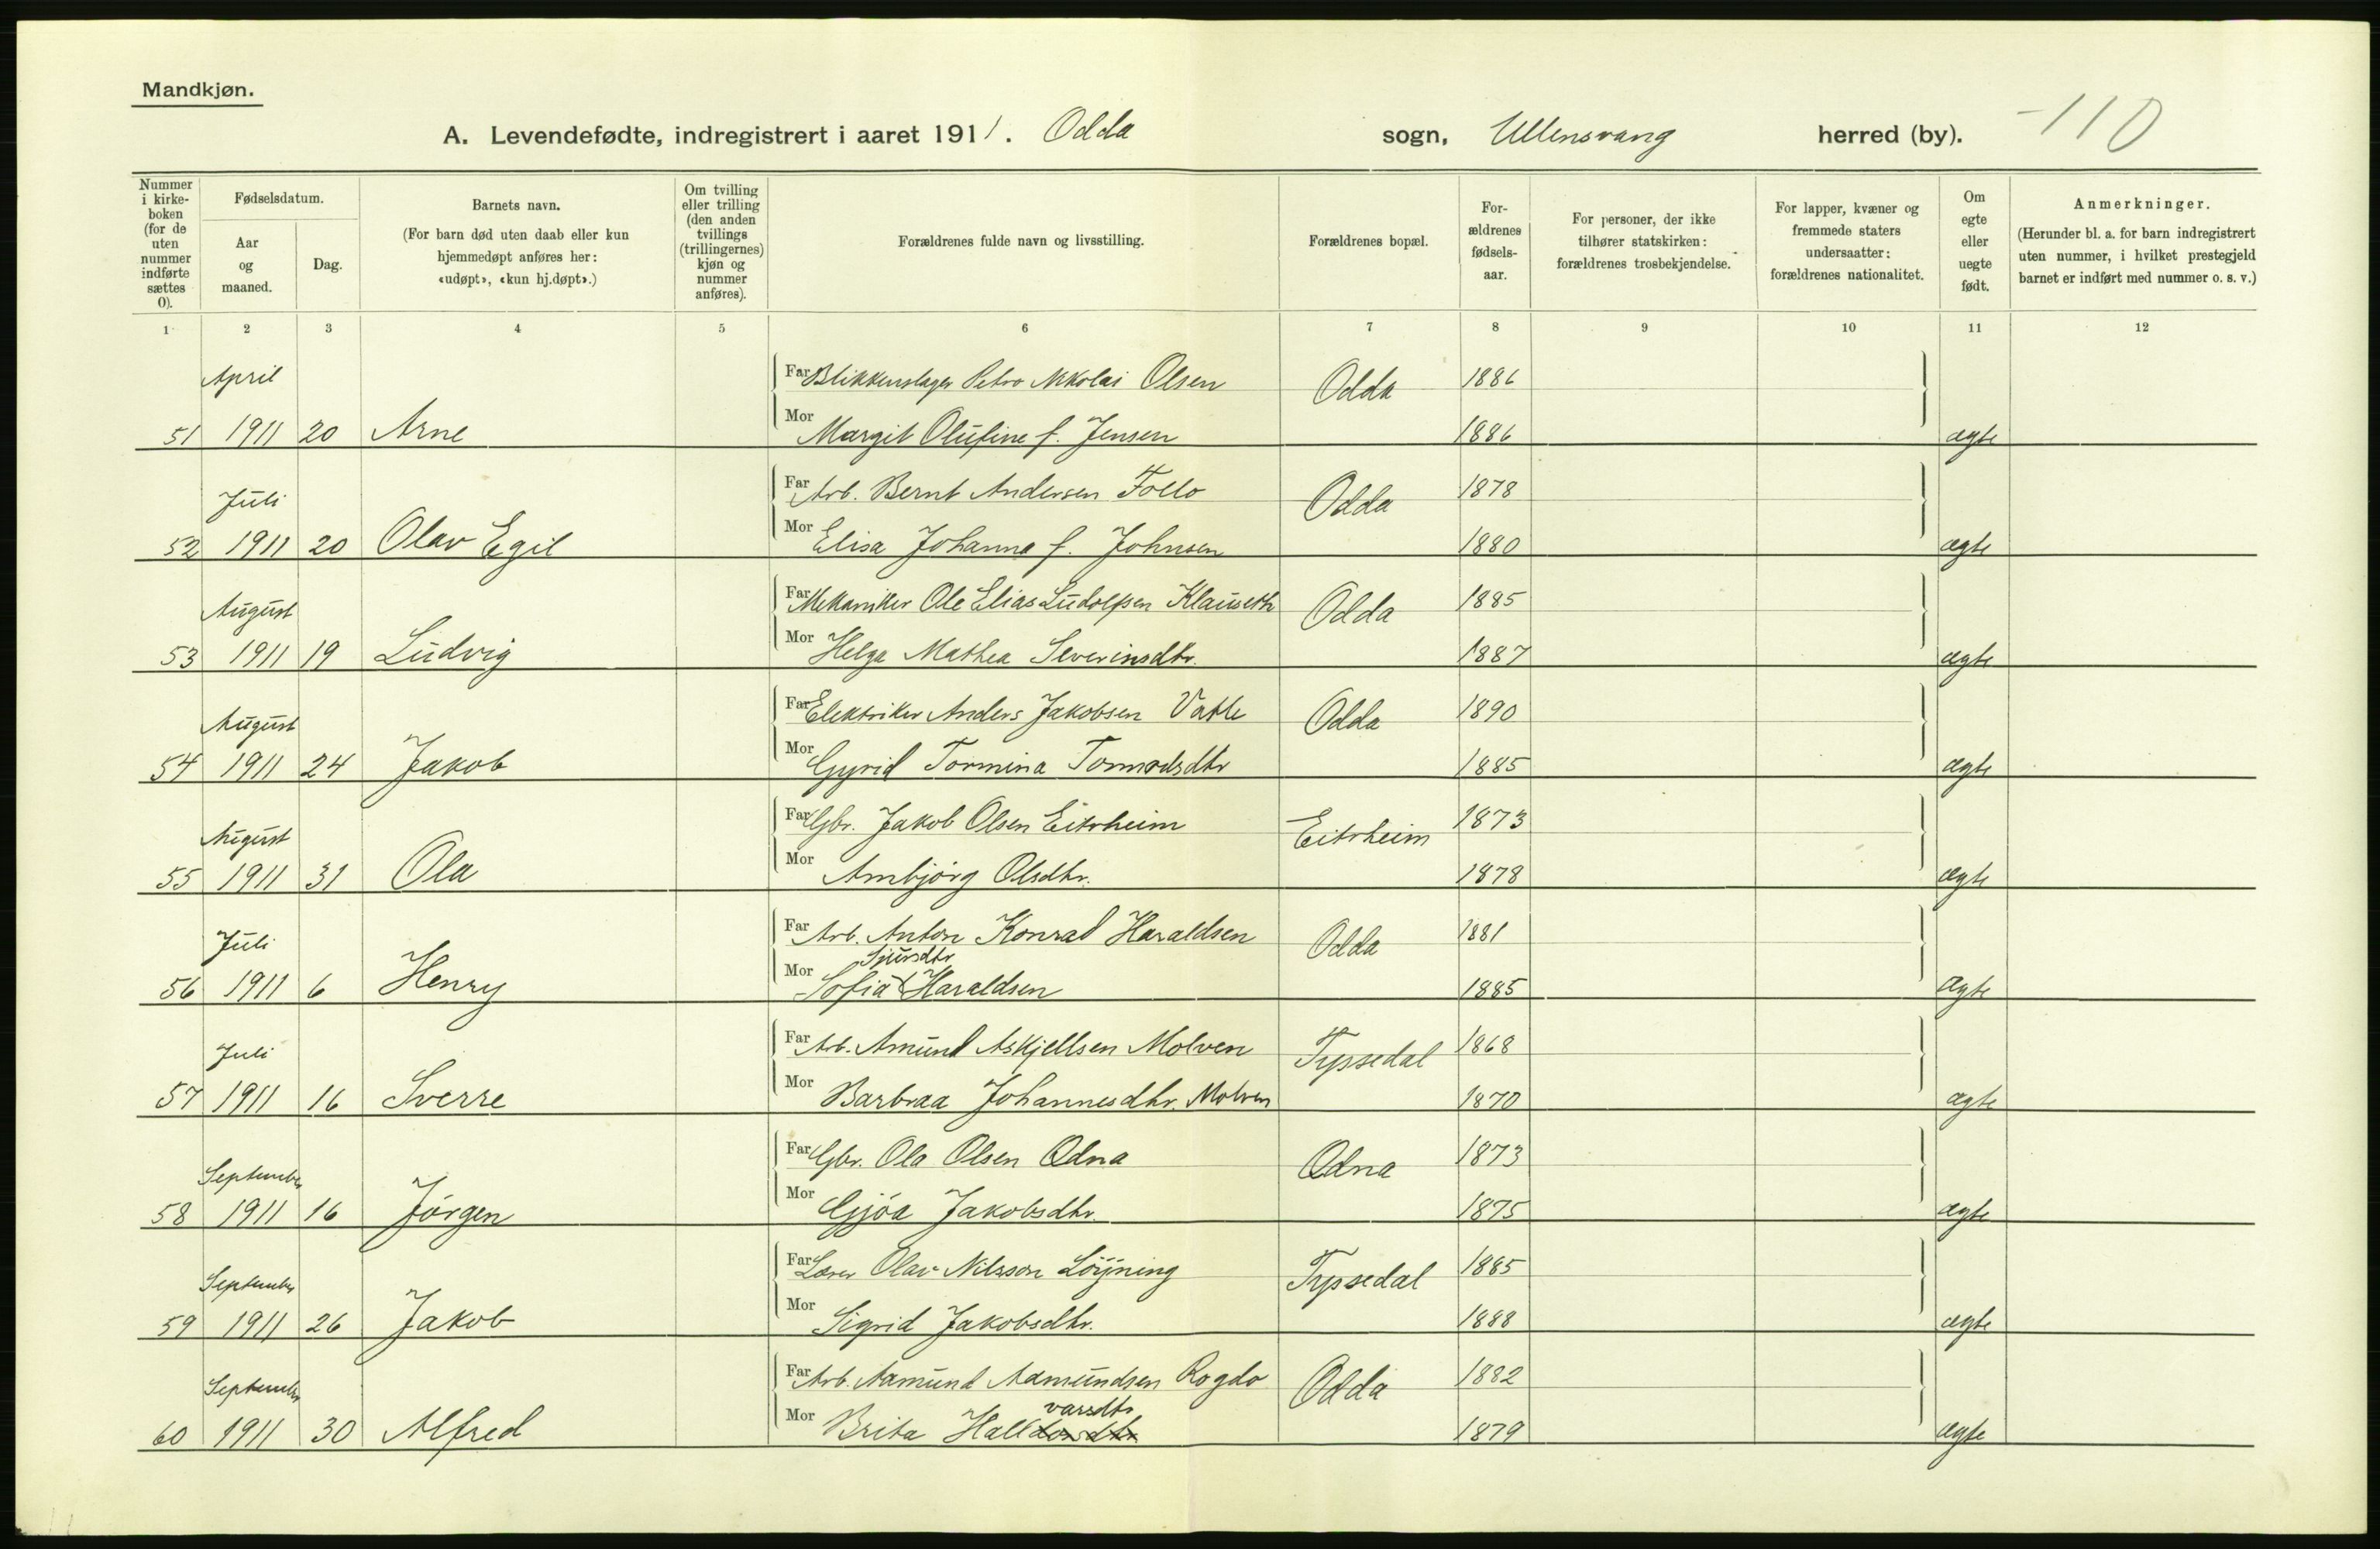 Mandkjøn.
A. Levendefødte, indregistrert i aaret 1911. Odda sogn, Ullensvang herred (by). -110
Nummer i kirkeboken (for de uten nummer indførte sættes 0).
Fødselsdatum.
Aar og maaned.
Dag.
Barnets navn.
(For barn død uten daab eller kun hjemmedøpt anføres her: «udøpt», «kun hj.døpt».)
Om tvilling eller trilling (den anden tvillings (trillingernes) kjøn og nummer anføres).
Forældrenes fulde navn og livsstilling.
Forældrenes bopæl.
Forældrenes fødselsaar.
For personer, der ikke tilhører statskirken: forældrenes trosbekjendelse.
For lapper, kvæner og fremmede staters undersaatter: forældrenes nationalitet.
Om egte eller uegte født.
Anmerkninger.
(Herunder bl. a. for barn indregistrert uten nummer, i hvilket prestegjeld barnet er indført med nummer o. s. v.)
1 2 3 4 5 6 7 8 9 10 11 12
April Far Blikkenslager Petro Nikolai Olsen Odda 1886
51 1911 20 Arne Mor Margit Olufine f. Jensen 1886 ægte
Juli Far Arb. Bernt Andersen Follo Odda 1878
52 1911 20 Olav Egil Mor Elisa Johanna f. Johnsen 1880 ægte
August Far Mekaniker Ole Elias Ludolfsen Klauseth Odda 1885
53 1911 19 Ludvig Mor Helga Mathea Severinsdtr. 1887 ægte
August Far Elektriker Anders Jakobsen Vatle Odda 1890
54 1911 24 Jakob Mor Gyrid Tormina Tormodsdtr 1885 ægte
August Far Gbr. Jakob Olsen Eitrheim Eitrheim 1873
55 1911 31 Ola Mor Ambjörg Olsdtr. 1878 ægte
Juli Far Arb. Anton Konrad Haraldsen Odda 1881
Sjursdtr
56 1911 6 Henry Mor Sofia Haraldsen 1885 ægte
Juli Far Arb. Amund Askjellsen Molven Tyssedal 1868
57 1911 16 Sverre Mor Barbraa Johannesdtr. Molven 1870 ægte
September Far Gbr. Ola Olsen Qdna Qdna 1873
58 1911 16 Jörgen Mor Gjöa Jakobsdtr. 1875 ægte
September Far Lærer Olav Nilsson Löyning Tyssedal 1885
59 1911 26 Jakob Mor Sigrid Jakobsdtr. 1888 ægte
September Far Arb. Aamund Aamundsen Rogdo Odda 1882
varsdtr
60 1911 30 Alfred Mor Brita Halldorsdtr 1879 ægte